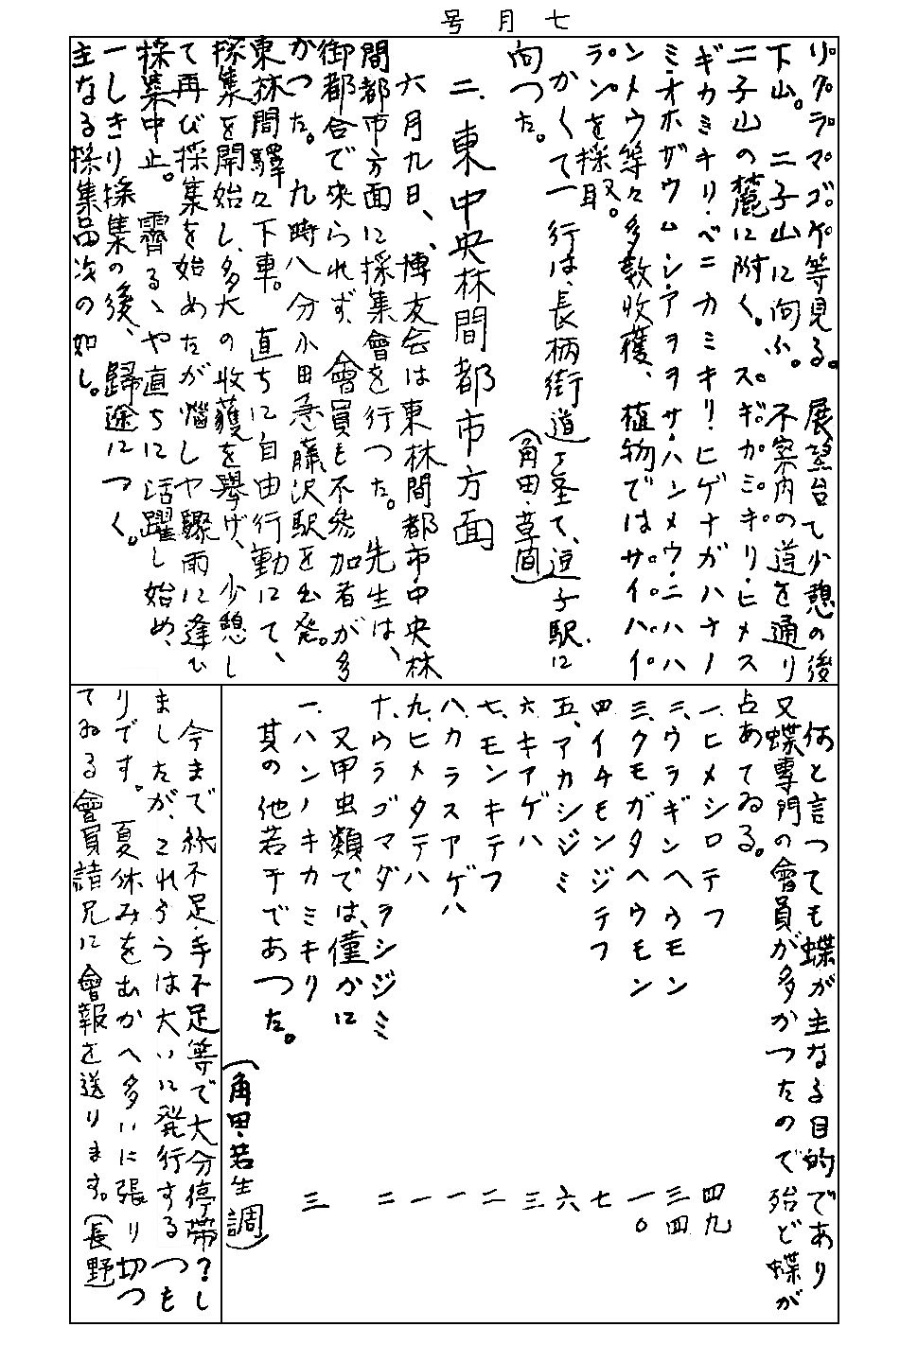 七月号
リ.グラマゴケ等見る。展望台で少憩の後
下山。二子山に向ふ。不案内の道を通り
二子山の麓に附く。スギカミキリ・ヒメス
ギカミキリ・ベニカミキリ・ヒゲナガハナノ
ミ・オホザウムシ・アヲヲサ・ハンメウ・ニハハ
ンメウ等々多数收獲、植物ではサイハイ
ランを採取。
かくて一行は、長柄街道を歪て、逗子駅に
向つた。
(角田・草間)
二．東中央林間都市方面
六月九日、博友会は東林間都市・中央林
間都市方面に採集會を行つた。先生は、
御都合で来られず、會員も不参加者が多
かつた。九時八分小田急藤沢駅を出発。
東林間驛々下車。直ちに自由行動にて、
採集を開始し、多大の收獲を擧げ、少憩し
て再び採集を始めたが惱しや驟雨に逢ひ
採集中止。霽るゝや直ちに活躍し始め、
一しきり採集の後、歸途につく。
主なる採集品次の如し。
何と言つても蝶が主なる目的であり
又蝶専門の會員が多かつたので殆ど蝶が
占めてゐる。
一、ヒメシロテフ 四九
二、ウラギンヘウモン 三四
三、クモガタヘウモン 一〇
四、イチモンジテフ 七
五、アカシジミ 六
六、キアゲハ 三
七、モンキテフ 二
八、カラスアゲハ 一
九、ヒメタテハ 一
十、ウラゴマダラシジミ 二
又甲虫類では、僅かに
一、ハンノキカミキリ 三
其の他若干であつた。
(角田・若生調)
今まで紙不足・手不足等で大分停滞?し
ましたが、これからは大いに発行するつも
りです。夏休みをむかへ多いに張り切つ
てゐる會員諸兄に會報を送ります。(長野)